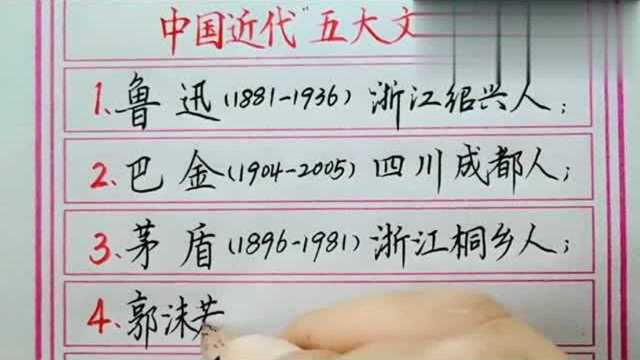 中国近代"五大文
1.鲁迅(1881-1936)浙江绍兴人;
2.巴金(1904-2005)四川成都人;
3.茅盾(1896-1981)浙江桐乡人;
4.郭沫若